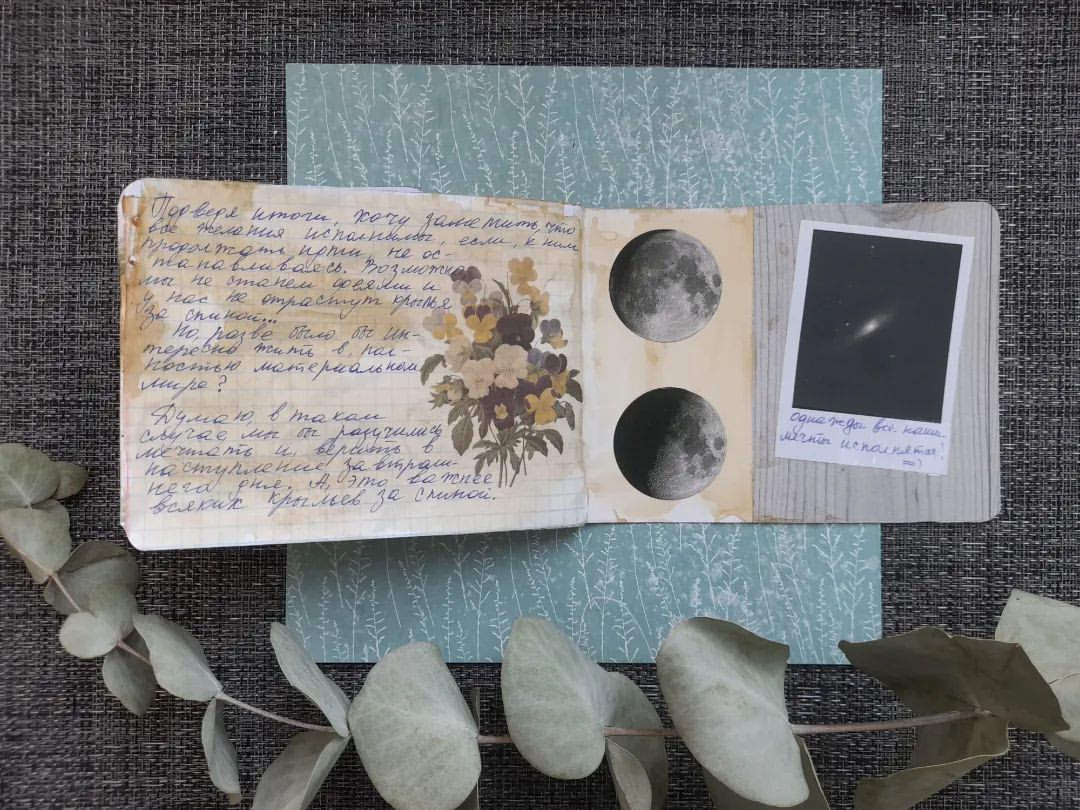 Подведя итоги, хочу заметить, что
все желания исполнимы, если, к ним
продолжать идти, не ос-
танавливаясь. Возможно
мы не станем феями и
у нас не отрастут крылья
за спиной...
Но разве было бы ин-
тересно жить в пол-
ностью материальном
мире?
Думаю, в таком
случае мы бы разучились
мечтать и, верить в
наступление завтраш-
него дня. А, это важнее
всяких крыльев за спиной.
однажды все наши
мечты исполнятся!
=)